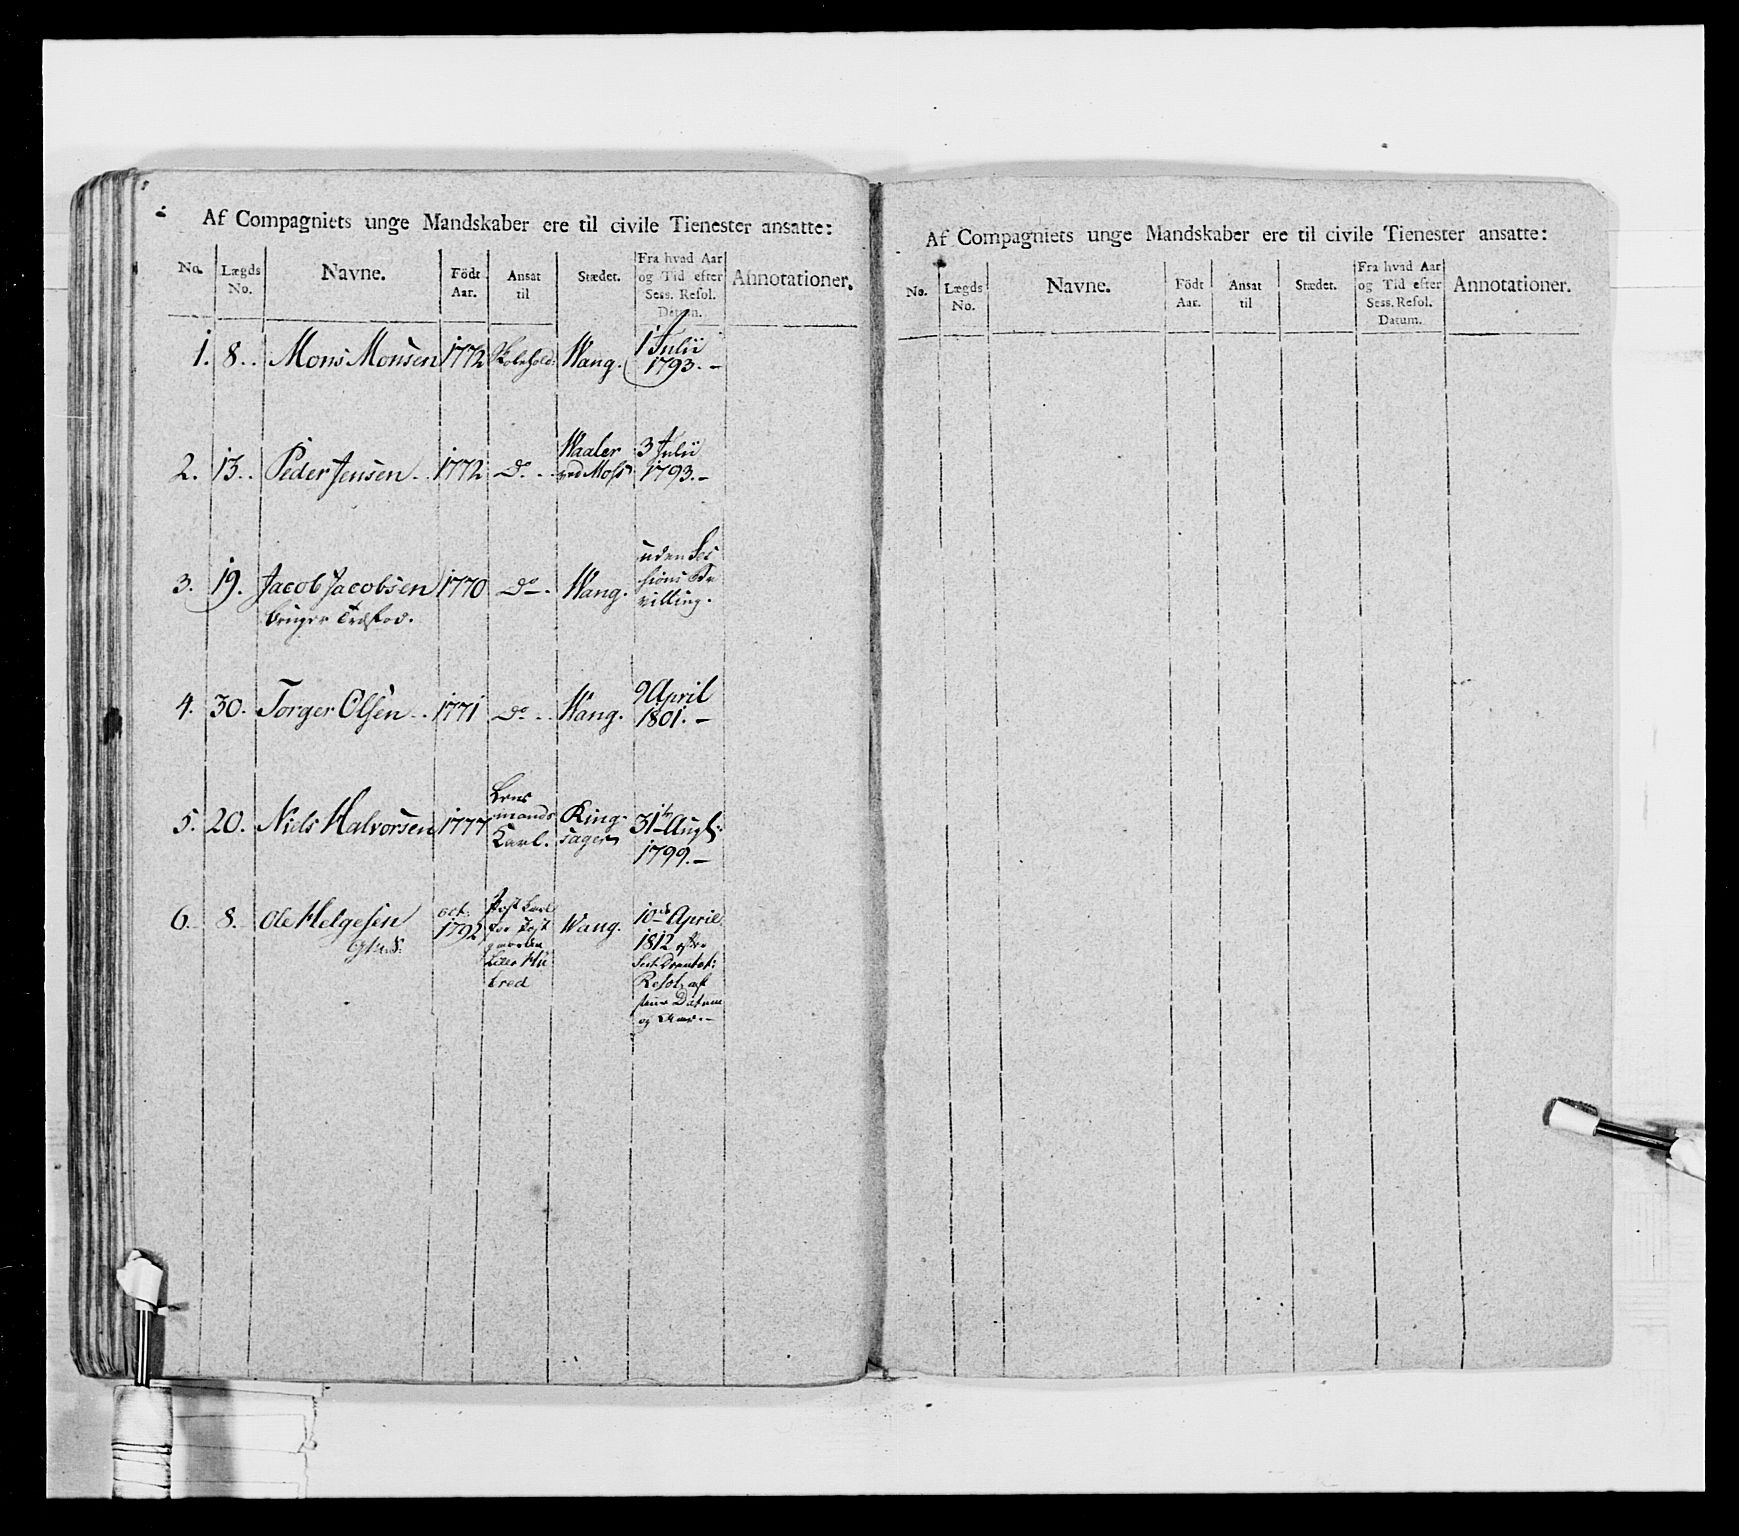 Af Compagniets unge Mandskaber ere til civile Tienester ansatte:
No. Lægds No. Navne. Födt Aar. Ansat til Stædet. Fra hvad Aar og Tid efter Sess. Resol. Datum. Annotationer.
1. 8. Mons Monsen 1772 Skolehold: Wang. 1 Julii 1793.
2. 13. Peder Jensen 1772 Do. Waaler ved Moss 3 Julii 1793.
3. 19. Jacob Jacobsen 1770 Do. Wang. uden Sessions Bevilling.
bruger Træfod.
4. 30. Torger Olsen 1771 Do. Wang. 9 April 1801.
5. 20. Niels Halvorsen 1777 Lensmands Karl. Ringsager 31te Augt: 1799.
6. 8. Ole Helgesen oct. 1792 Postkarl for Postgaarden Wang. 10de April 1812 efter Resol. af Datum og Aar.
Af Compagniets unge Mandskaber ere til civile Tienester ansatte:
No. Lægds No. Navne. Födt Aar. Ansat til Stædet. Fra hvad Aar og Tid efter Sess. Resol. Datum. Annotationer.